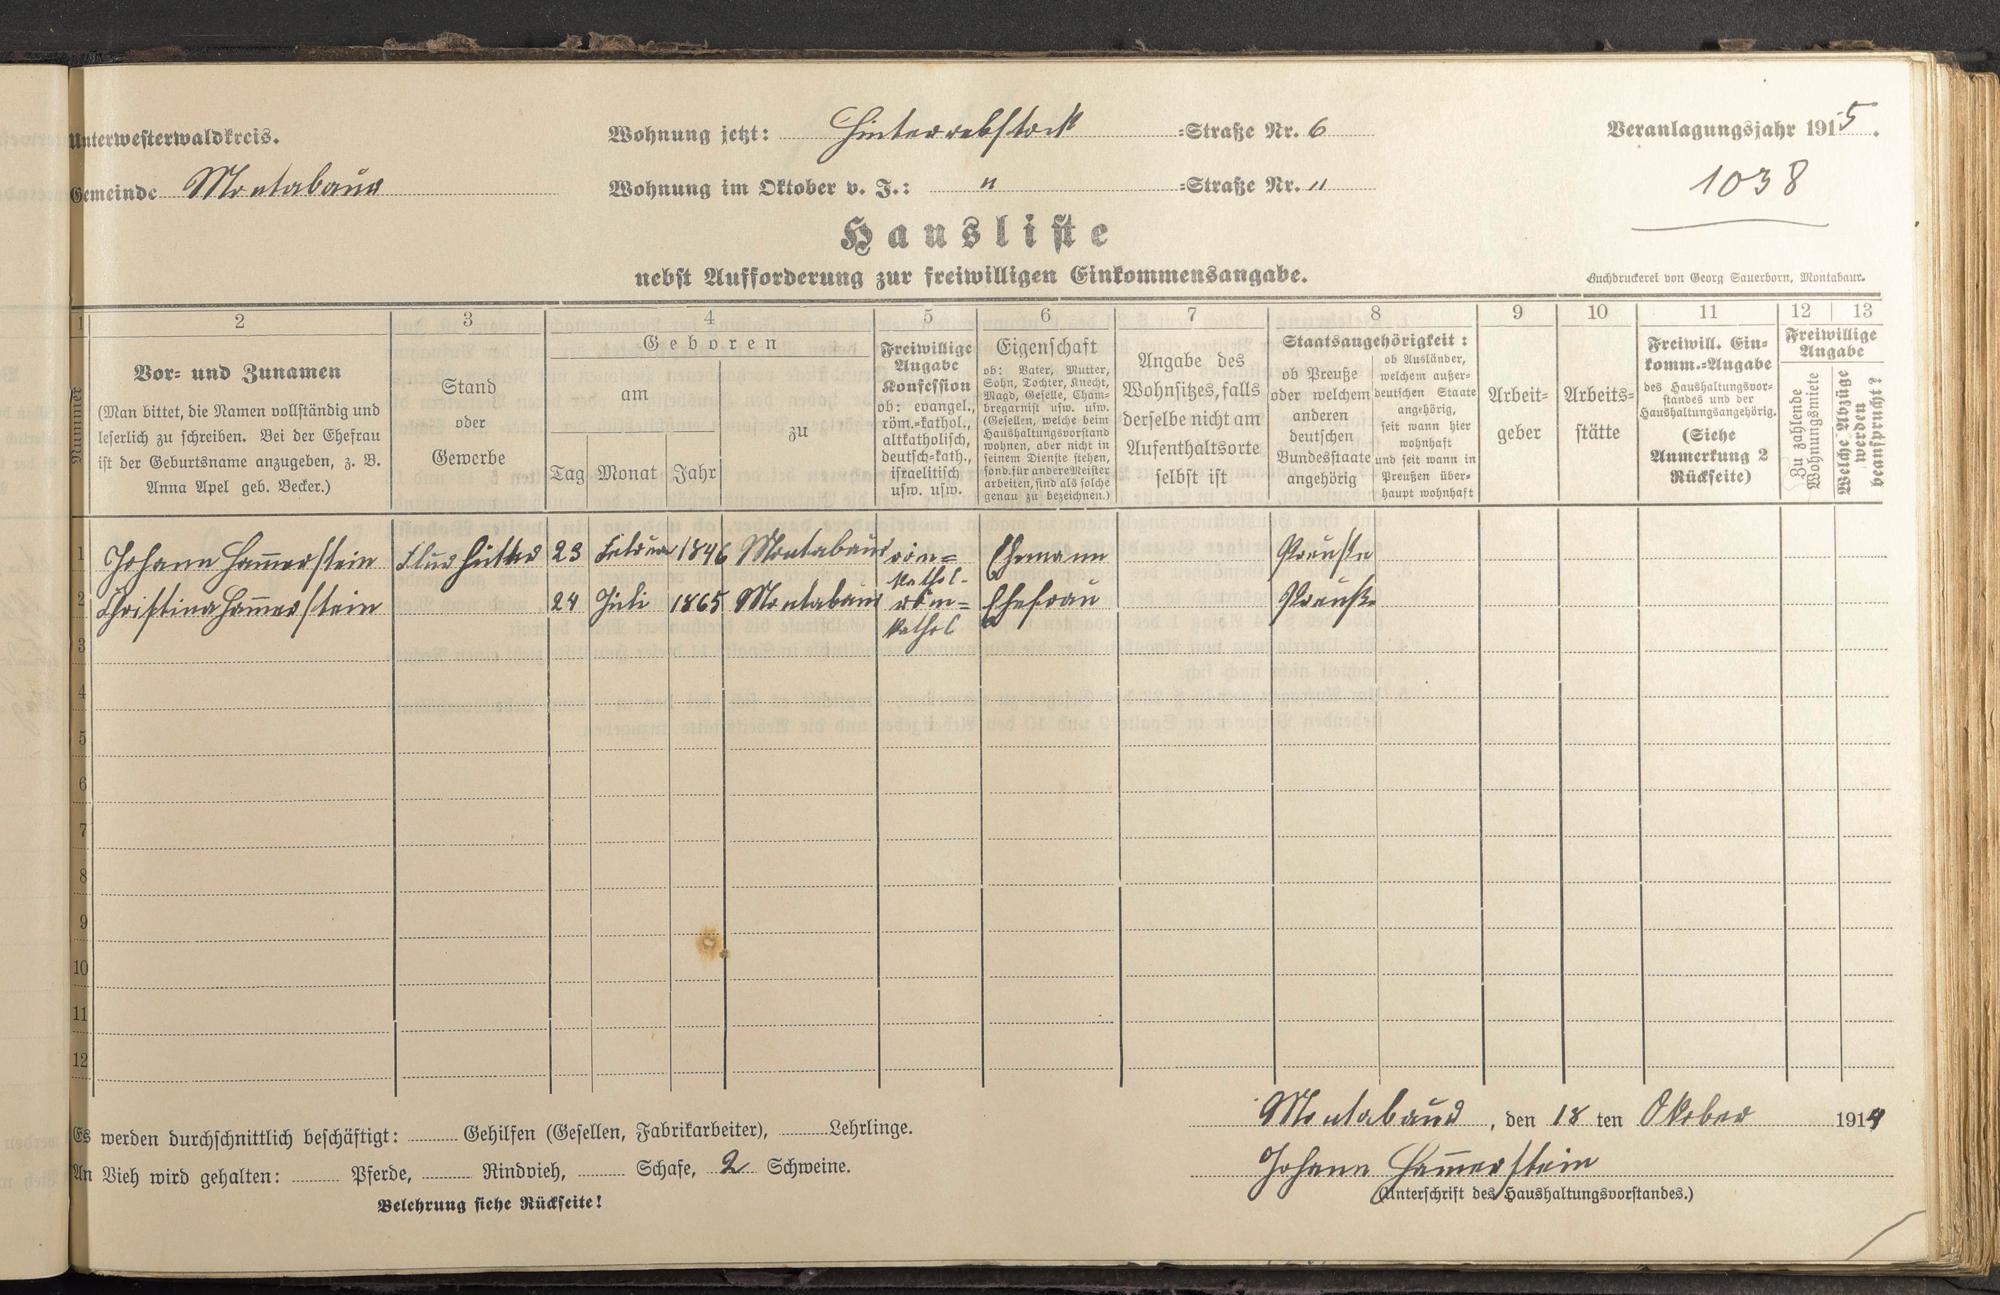 Unterwesterwaldkreis.
Gemeinde Montabaur
Wohnung jetzt: Hinterrebstock =Straße Nr. 6
Wohnung im Oktober v. J.: " =Straße Nr. "
Veranlagungsjahr 1915.
1038
Hausliste
nebst Aufforderung zur freiwilligen Einkommensangabe.
Buchdruckerei von Georg Sauerborn, Montabaur.
1 2 3 4 5 6 7 8 9 10 11 12 13
Nummer
Vor= und Zunamen
(Man bittet, die Namen vollständig und
leserlich zu schreiben. Bei der Ehefrau
ist der Geburtsname anzugeben, z. B.
Anna Apel geb. Becker.)
Stand
oder
Gewerbe
Geboren
am
Tag Monat Jahr
zu
Freiwillige
Angabe
Konfession
ob: evangel.,
röm.=kathol.,
altkatholisch,
deutsch=kath.,
israelitisch
usw. usw.
Eigenschaft
ob: Vater, Mutter,
Sohn, Tochter, Knecht,
Magd, Geselle, Cham=
bregarnist usw. usw.
(Gesellen, welche beim
Haushaltungsvorstand
wohnen, aber nicht in
seinem Dienste stehen,
sond. für andere Meister
arbeiten, sind als solche
genau zu bezeichnen.)
Angabe des
Wohnsitzes, falls
derselbe nicht am
Aufenthaltsorte
selbst ist
Staatsangehörigkeit:
ob Preuße
oder welchem
anderen
deutschen
Bundesstaate
angehörig
ob Ausländer,
welchem außer=
deutschen Staate
angehörig,
seit wann hier
wohnhaft
und seit wann in
Preußen über=
haupt wohnhaft
Arbeit=
geber
Arbeits=
stätte
Freiwill. Ein=
komm.=Angabe
des Haushaltungsvor=
standes und der
Haushaltungsangehörig.
(Siehe
Anmerkung 2
Rückseite)
Freiwillige
Angabe
Zu zahlende
Wohnungsmiete
Welche Abzüge
werden
beansprucht?
1 Johann Ham̄erstein Flurhüter 23 Februar 1846 Montabaur röm=kathol. Ehemann Preuße
2 Christina Ham̄erstein 24 Juli 1865 Montabaur röm=kathol Ehefrau Preuße
3
4
5
6
7
8
9
10
11
12
Es werden durchschnittlich beschäftigt: Gehilfen (Gesellen, Fabrikarbeiter), Lehrlinge.
An Vieh wird gehalten: Pferde, Rindvieh, Schafe, 2 Schweine.
Belehrung siehe Rückseite!
Montabaur, den 18 ten Oktober 1914
Johann Ham̄erstein
(Unterschrift des Haushaltungsvorstandes.)